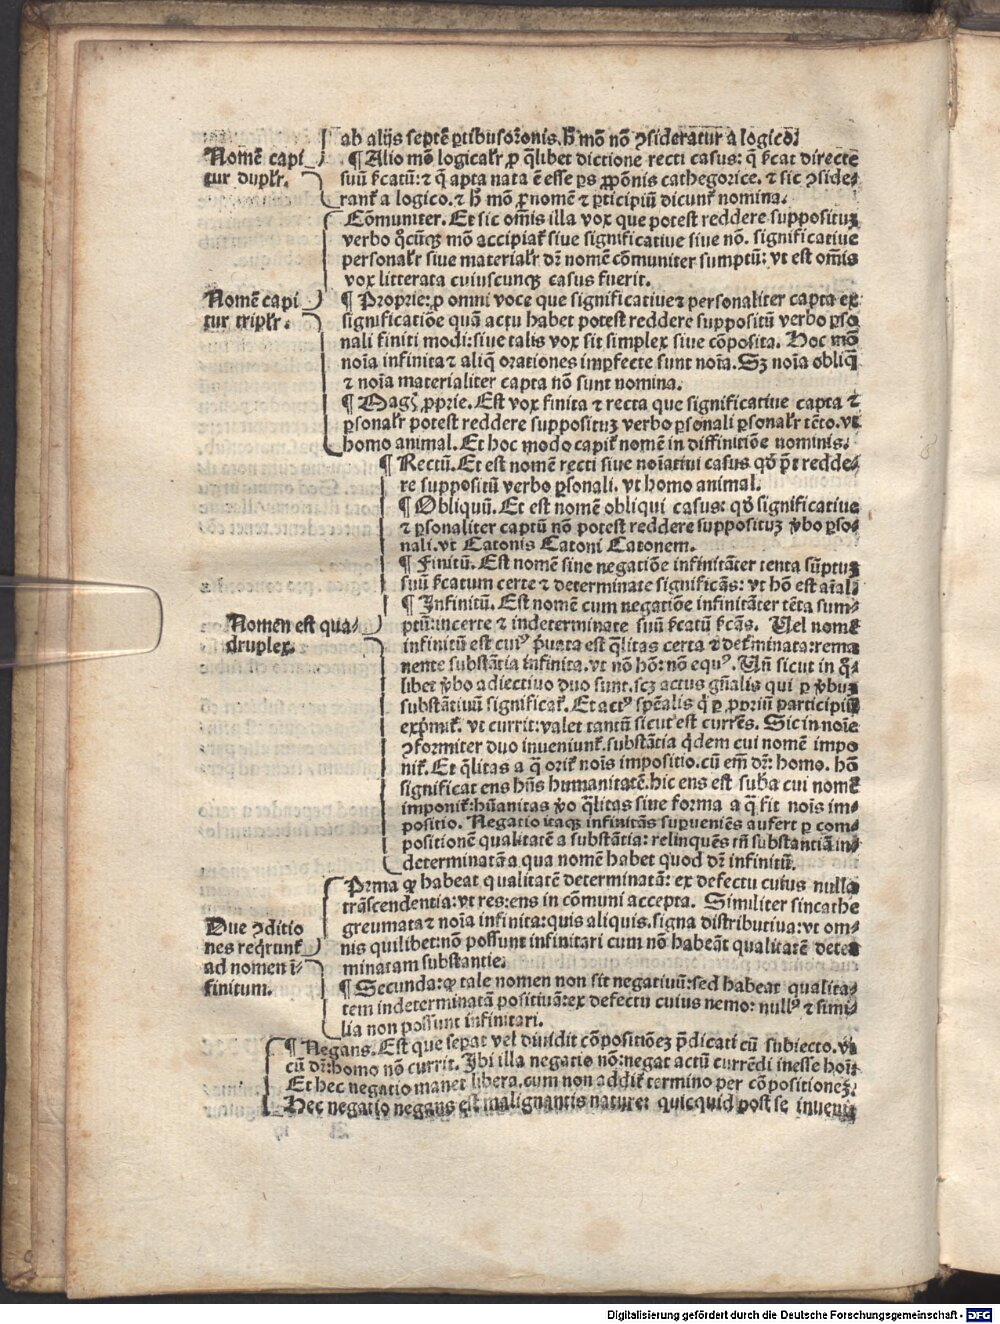 ab alijs septē ꝑtibus or̄onis. h̄ mō nō ꝯsideratur a logico.
Nomē capi
tur duplr̄.
¶ Alio mō logicalr̄ ꝓ q̄libet dictione recti casus: q̄ ſcat directe
suū ſcatū: ⁊ q̄ apta nata ē esse ꝑs ꝓpōnis cathegorice. ⁊ sic ꝯside-
rant̄ a logico. ⁊ h̄ mō ꝓnomē ⁊ ꝑticipiū dicunt̄ nomina.
Cōmuniter. Et sic om̄is illa vox que potest reddere supposituꝫ
verbo q̄cūqꝫ mō accipiat̄ siue significatiue siue nō. significatiue
personalr̄ siue materialr̄ dr̄ nomē cōmuniter sumptū: vt est om̄is
vox litterata cuiuscunqꝫ casus fuerit.
Nomē capi
tur triplr̄.
¶ Proprie: ꝓ omni voce que significatiue ⁊ personaliter capta ex
significatiōe quā actu habet potest reddere suppositū verbo ꝑso
nali finiti modi: siue talis vox sit simplex siue cōposita. Hoc mō
noīa infinita ⁊ aliq̄ orationes imꝑfecte sunt noīa. Sꝫ noīa obliq̄
⁊ noīa materialiter capta nō sunt nomina.
¶ Magꝭ ꝓprie. Est vox finita ⁊ recta que significatiue capta ⁊
ꝑsonalr̄ potest reddere supposituꝫ verbo ꝑsonali ꝑsonalr̄ tēto. vt
homo animal. Et hoc modo capit̄ nomē in diffinitiōe nominis.
¶ Rectū. Et est nomē recti siue noīatiui casus qd̄ p̄t redde-
re suppositū verbo ꝑsonali. vt homo animal.
¶ Obliquū. Et est nomē obliqui casus: qd̄ significatiue
⁊ ꝑsonaliter captū nō potest reddere supposituꝫ v̄bo ꝑso-
nali. vt Catonis Catoni Catonem.
¶ Finitū. Est nomē sine negatiōe infinitāter tenta sūptuꝫ
suū ſcatum certe ⁊ determinate significās: vt hō est aīal
¶ Infinitū. Est nomē cum negatiōe infinitāter tēta sum-
Nomen est qua-
druplex.
ptū: incerte ⁊ indeterminate suū ſcatū ſcās. Uel nomē
infinitū est cuiꝰ p̄uata est q̄litas certa ⁊ det̄minata: rema
nente substātia infinita. vt nō hō: nō equꝰ. Uñ sicut in q̄-
libet v̄bo adiectiuo duo sunt. scꝫ actus gn̄alis qui ꝑ v̄buꝫ
substātiuū significat̄. Et actꝰ sp̄ealis q̄ ꝑ ꝓpriū participiū
exp̄mit̄. vt currit: valet tantū sicut est currēs. Sic in noīe
ꝯformiter duo inueniunt̄. substātia q̄dem cui nomē impo
nit̄. Et q̄litas a q̄ orit̄ noīs impositio. cū em̄ dr̄: homo. hō
significat ens hn̄s humanitatē. hic ens est sub̄a cui nomē
imponit̄: hūanitas v̄o q̄litas siue forma a q̄ fit noīs im-
positio. Negatio itaqꝫ infinitās suꝑueniēs aufert ꝑ com-
positionē qualitatē a substātia: relinquēs tn̄ substantiā in-
determinatā a qua nomē habet quod dr̄ infinitū.
Prima ꝙ habeat qualitatē determinatā: ex defectu cuius nulla
trāscendentia: vt res: ens in cōmuni accepta. Similiter sincathe
Due ꝯditio
nes req̄runt̄
ad nomen ī-
finitum.
greumata ⁊ noīa infinita: quis aliquis. signa distributiua: vt om-
nis quilibet: nō possunt infinitari cum nō habeāt qualitatē deter
minatam substantie.
¶ Secunda: ꝙ tale nomen non sit negatiuū: sed habeat qualita-
tem indeterminatā positiuā: ex defectu cuius nemo: nullꝰ ⁊ simi-
lia non possunt infinitari.
¶ Negans. Est que separat vel diuidit cōpositiōeꝫ p̄dicati cū subiecto. vt
cū dr̄: homo nō currit. Ibi illa negatio nō: negat actū currēdi inesse hoīt
Et hec negatio manet libera. cum non addit̄ termino per cōpositioneꝫ.
Hec negatio negans est malignantis nature: quicquid post se inuenit
Digitalisierung gefördert durch die Deutsche Forschungsgemeinschaft - DFG